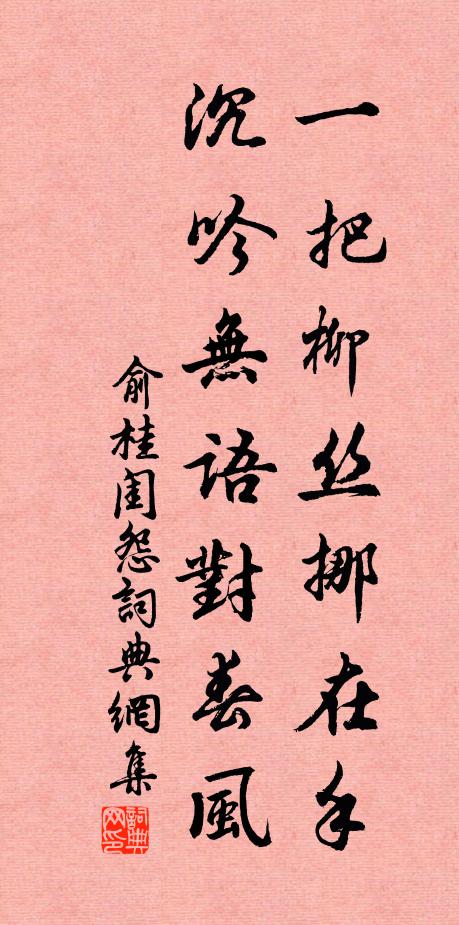 一把柳丝挪在手
沉吟無語對春風
俞桂闺怨詞典網集
詞典网印